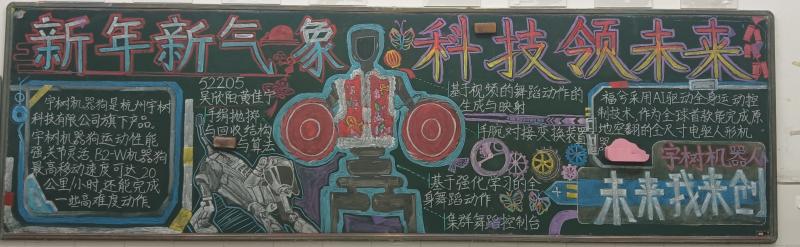 新年新气象 科技领未来
宇树机器狗是杭州宇树
科技有限公司旗下产品。
宇树机器狗运动性能
强,关节灵活,B2-W机器狗
最高移动速度可达20
公里/小时,还能完成
一些高难度动作
52205
吴欣阳 黄佳宇
手绢抛掷
与回收结构
与算法
基于视频的舞蹈动作的
生成与映射
手腕对接变换装置
基于强化学习的全
身舞蹈动作
集群舞蹈控制台
福兮采用AI驱动全身运动控
制技术,作为全球首款能完成原
地空翻的全尺寸电驱人形机
宇树机器人
未来我来创